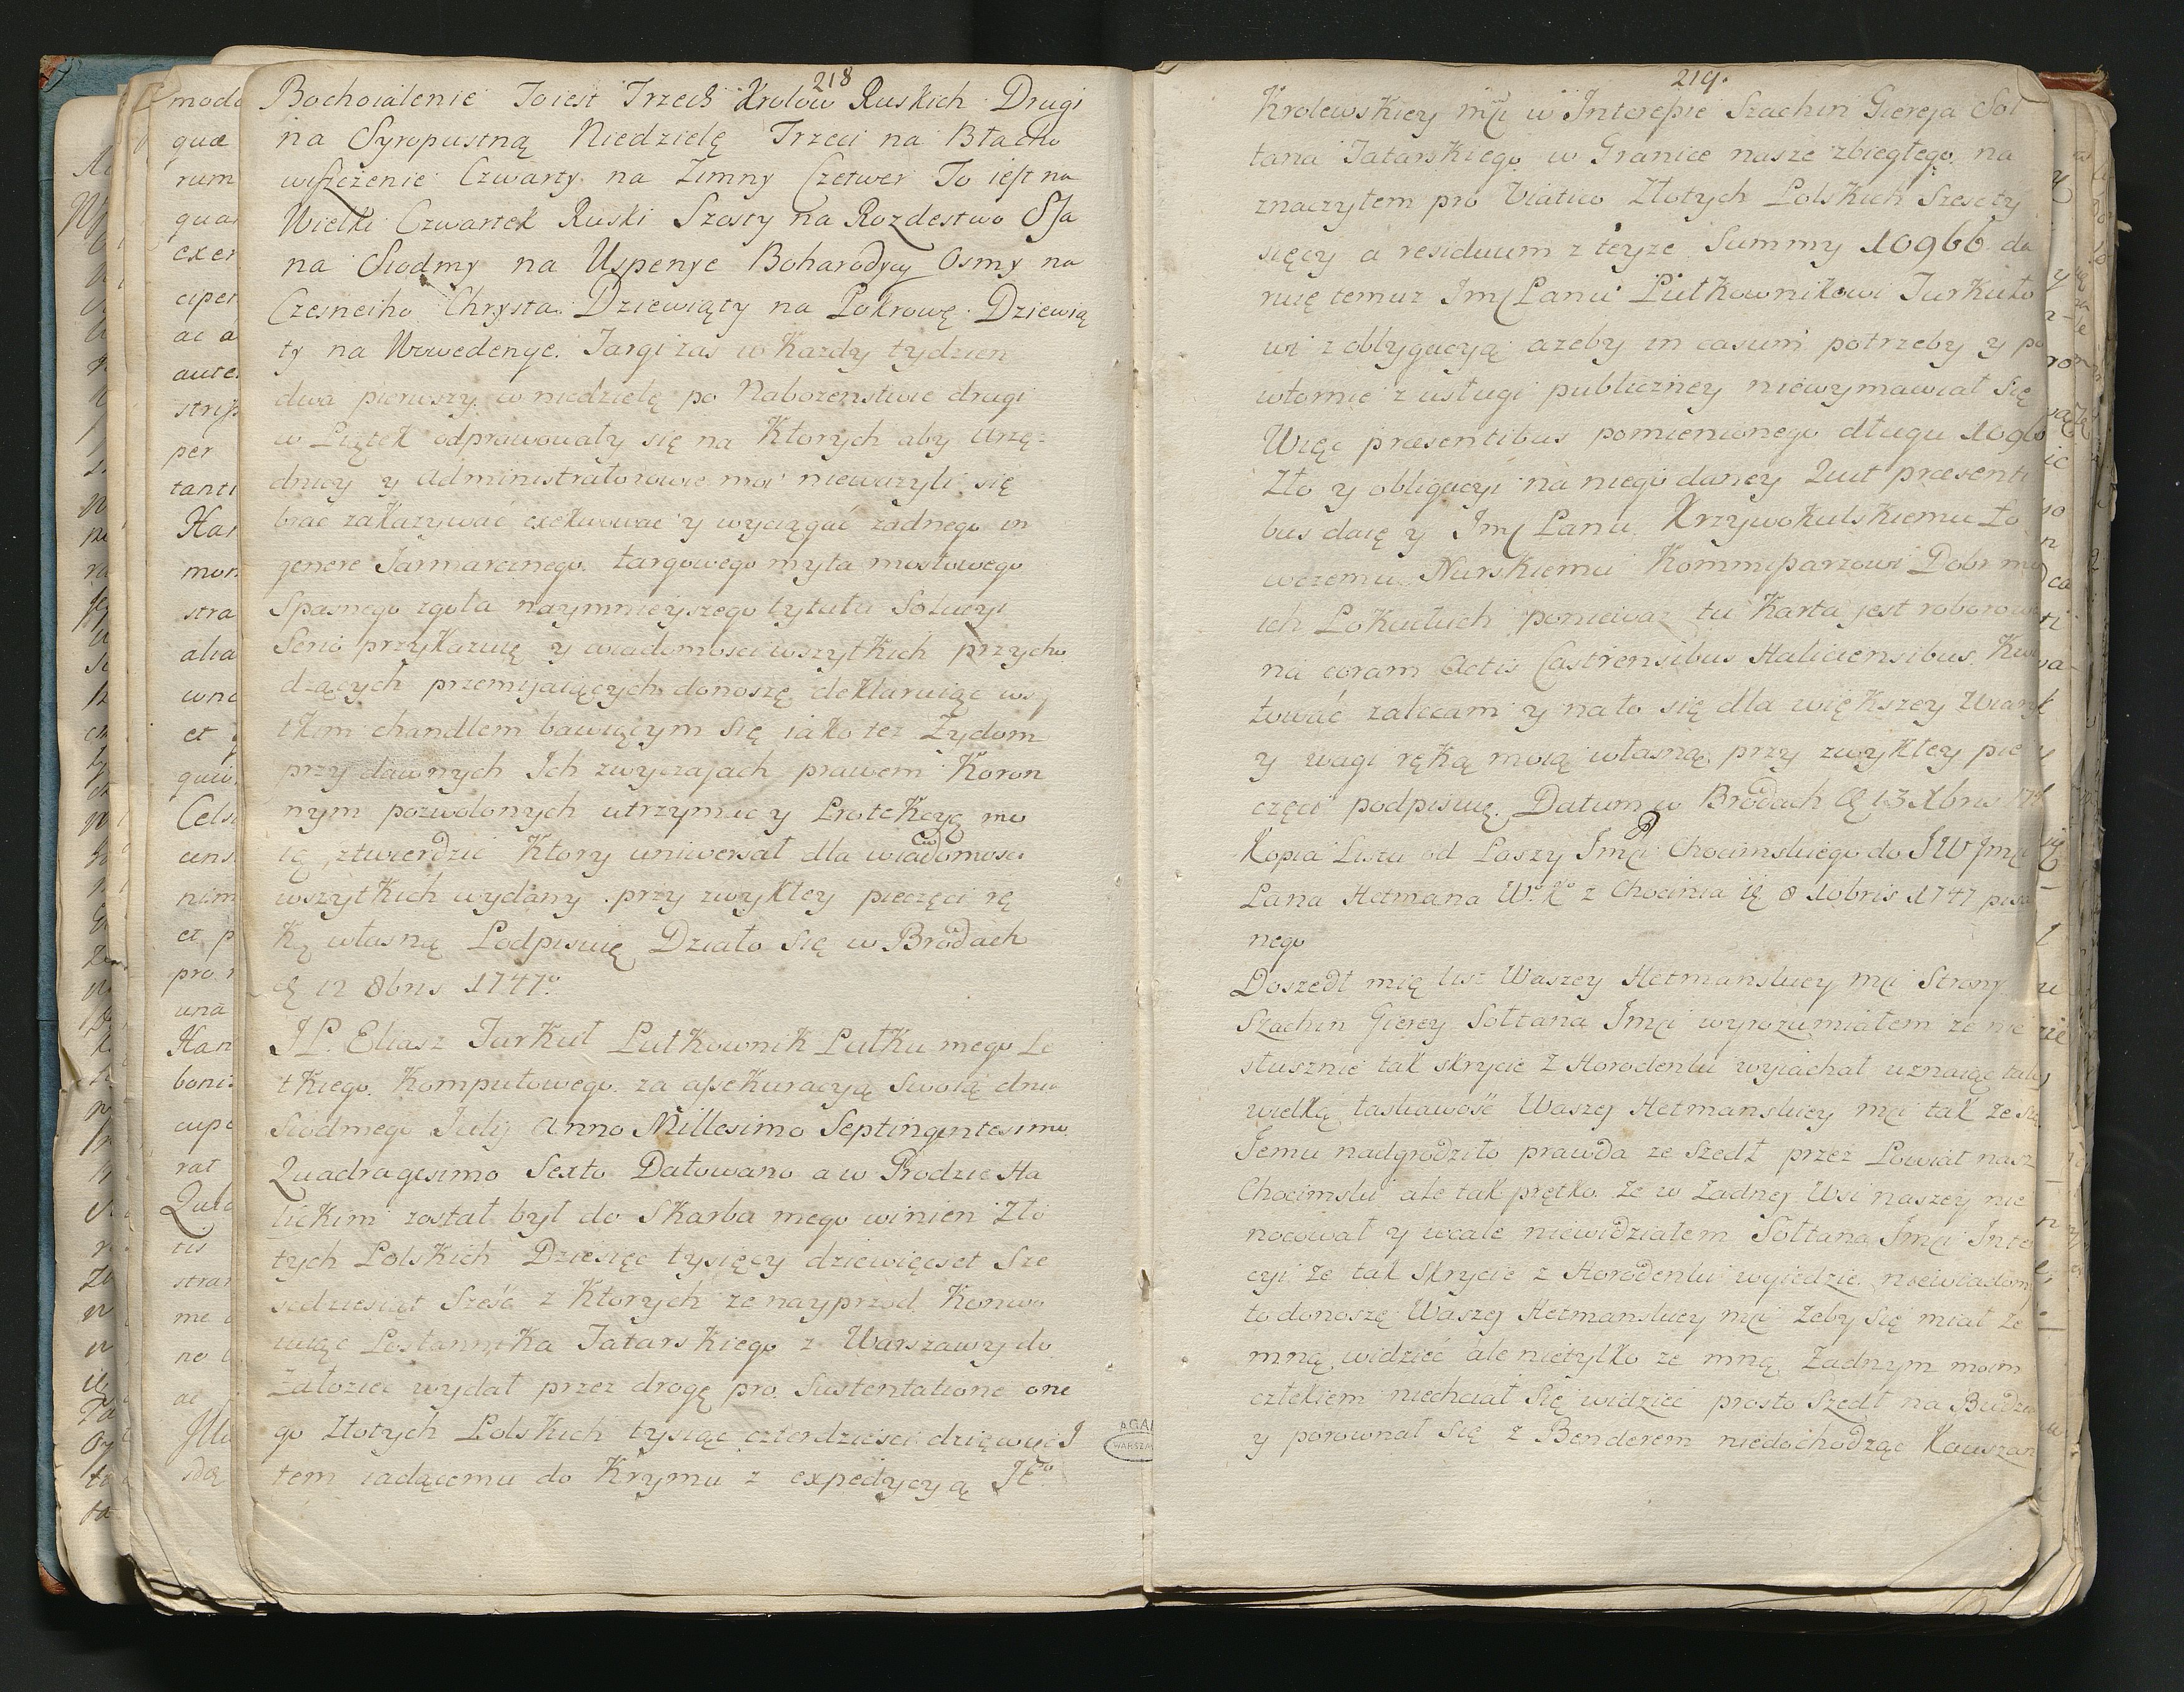 218
Bochoialenie Toiest Trzech Krolow Ruskich Drugi
na Syropustną Niedzielę Trzeci na Błacho
wiszczenie Czwarty na Zimny Czetwer To iest na
Wielki Czwartek Ruski Szosty na Rozdestwo S Ja
na Siodmy na Uspenye Boharodycy Osmy na
Czesneiho Chrysta Dziewiąty na Pokrowę Dziewią
ty na Wowedenye. Targi zas w Kazdy tydzien
dwa pierwszy w niedzielę po Nabozenstwie drugi
w Piątek odprawowały się na Ktorych aby Urzę-
dnicy y Administratorowie moi niewazyli się
brac zakazywac exekwowac y wyciągac zadnego in
genere Jarmarcznego targowego myta mostowego
Spasnego zgoła naymnieyszego tytułu Solucyi
Serio przykazuię y wiadomosci wszytkich przycho
dzących przemijaiących donoszę deklaruiąc wszy
tkim chandlem bawiącym się iako tez Zydom
przy dawnych Ich zwyczajach prawem Koron
nym pozwolonych utrzymac y Protekcyą mo
ią ztwierdzic Ktory uniwersał dla wiadomosci
wszytkich wydany przy zwykłey pieczęci rę
ką własną Podpisuię Działo się w Brodach
12 8bris 1747o
JP. Eliasz Turkuł Pułkownik Pułku mego Le
tkiego Komputowego za assekuracyą Swoią dnia
Siodmego Julij Anno Millesimo Septingentesimo
Quadragesimo Sexto Datowano a w Grodzie Ha
lickim został był do Skarbu mego winien Zło
tych Polskich Dziesięc tysięcy dziewięcset Sze
sedziesiąt Sześć z Ktorych ze nayprzod Konwo
iuiąc Posłannika Tatarskiego z Warszawy do
Załoziec wydał przez drogę pro Sustentatione one
go Złotych Polskich tysiąc czterdziesci dziewięć J
tem iadącemu do Krymu z expedycyą JKo
219.
Krolewskiey mci w Interessie Szachin Giereja Soł
tana Tatarskiego w Granice nasze zbiegłego na
znaczyłem pro Viatico Złotych Polskich Szesc ty
sięcy a residuum z teyze Summy 10966 da
ruię temuz Jmc Panu Pułkownikowi Turkuło
wi z obligacyą azeby in casum potrzeby y po
wtornie z usługi publiczney niewymawiał się
Więc praesentibus pomienionego długu 10966
Zło y obligacyi na niego daney Quit praesenti
bus daię y Jmc Panu Krzywokulskiemu Ło
wczemu Nurskiemu Kommissarzowi Dobr mo
ich Pokuckich poniewaz ta Karta jest roborowa
na coram Actis Castrensibus Haliciensibus Kwi
towac zalecam y na to się dla większey Wiary
y wagi ręką moią własną przy zwykłey pie
częci podpisuię. Datum w Brodach 13 Xbris 174
Kopia Listu od Paszy Jmci Chocimskiego do JW Jmci
Pana Hetmana W. K. z Chocimia 8 10bris 1747 pisa
nego
Doszedł mię list Waszey Hetmanskiey mci Strony
Szachin Gierey Sołtana Jmci wyrozumiałem ze nie
słusznie tak skrycie z Horodenki wyiachał uznaiąc taką
wielką łaskawość Waszej Hetmanskiey mci tak ze się
Jemu nadgrodziło prawda ze Szedł przez Powiat nasz
Chocimski ale tak prętko ze w zadnej Wsi naszey nie
nocował y wcale niewidziałem Sołtana Jmci Inten
cyi ze tak skrycie z Horodenki wyiedzie niewiadom
to donoszę Waszej Hetmanskiey mci zeby się miał ze
mną widzieć ale nietylko ze mną zadnym moim
człekiem niechciał się widziec prosto Szedł na Budzia
y porownał się z Benderem niedochodząc Kauszan
AGAD
WARSZAWA